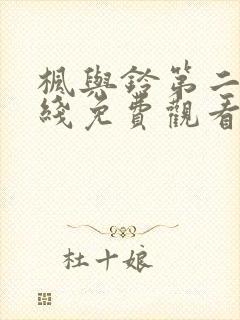 楓與鈴第二
綫免費觀看
杜十娘